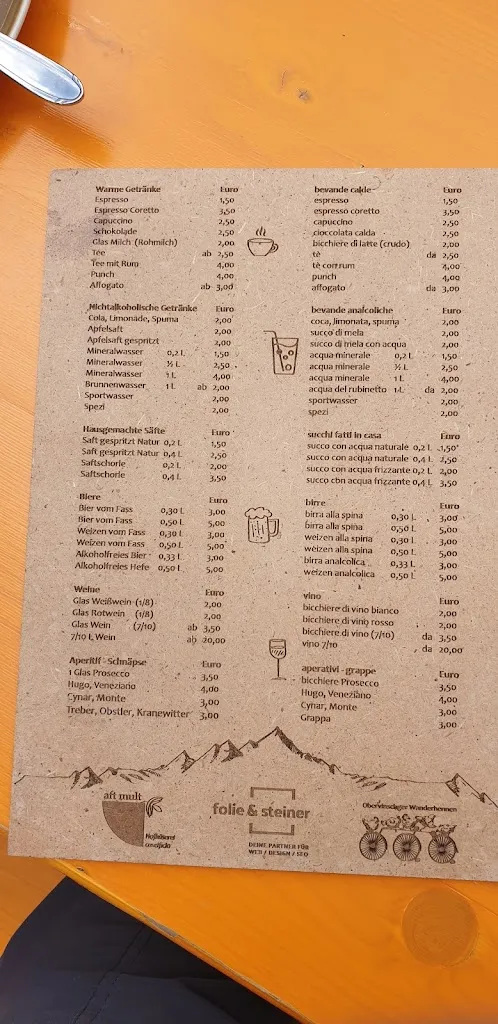 Warme Getränke Euro
Espresso 1,50
Espresso Coretto 3,50
Capuccino 2,50
Schokolade 2,50
Glas Milch (Rohmilch) 2,00
Tee ab 2,50
Tee mit Rum 4,00
Punch 4,00
Affogato ab 3,00
Nichtalkoholische Getränke Euro
Cola, Limonade, Spuma 2,00
Apfelsaft 2,00
Apfelsaft gespritzt 2,00
Mineralwasser 0,2 L 1,50
Mineralwasser ½ L 2,50
Mineralwasser 1 L 4,00
Brunnenwasser 1 L ab 2,00
Sportwasser 2,00
Spezi 2,00
Hausgemachte Säfte Euro
Saft gespritzt Natur 0,2 L 1,50
Saft gespritzt Natur 0,4 L 2,50
Saftschorle 0,2 L 2,00
Saftschorle 0,4 L 3,50
Biere Euro
Bier vom Fass 0,30 l 3,00
Bier vom Fass 0,50 l 5,00
Weizen vom Fass 0,30 l 3,00
Weizen vom Fass 0,50 l 5,00
Alkoholfreies Bier 0,33 l 3,00
Alkoholfreies Hefe 0,50 l 5,00
Weine Euro
Glas Weißwein (1/8) 2,00
Glas Rotwein (1/8) 2,00
Glas Wein (7/10) ab 3,50
7/10 L Wein ab 20,00
Aperitif - Schnäpse Euro
1 Glas Prosecco 3,50
Hugo, Veneziano 4,00
Cynar, Monte 3,00
Treber, Obstler, Kranewitter 3,00
bevande calde Euro
espresso 1,50
espresso coretto 3,50
capuccino 2,50
cioccolata calda 2,50
bicchiere di latte (crudo) 2,00
tè da 2,50
tè con rum 4,00
punch 4,00
affogato da 3,00
bevande analcoliche Euro
coca, limonata, spuma 2,00
succo di mela 2,00
succo di mela con acqua 2,00
acqua minerale 0,2 L 1,50
acqua minerale ½ L 2,50
acqua minerale 1 L 4,00
acqua del rubinetto 1 L da 2,00
sportwasser 2,00
spezi 2,00
succhi fatti in casa Euro
succo con acqua naturale 0,2 L 1,50
succo con acqua naturale 0,4 L 2,50
succo con acqua frizzante 0,2 L 2,00
succo con acqua frizzante 0,4 L 3,50
birre Euro
birra alla spina 0,30 L 3,00
birra alla spina 0,50 L 5,00
weizen alla spina 0,30 l 3,00
weizen alla spina 0,50 l 5,00
birra analcolica 0,33 l 3,00
weizen analcolica 0,50 l 5,00
vino Euro
bicchiere di vino bianco 2,00
bicchiere di vino rosso 2,00
bicchiere di vino (7/10) da 3,50
vino 7/10 da 20,00
aperativi - grappe Euro
bicchiere Prosecco 3,50
Hugo, Veneziano 4,00
Cynar, Monte 3,00
Grappa 3,00
aft mult
Hofkäserei
caseificio
folie & steiner
DEINE PARTNER FÜR
WEB / DESIGN / SEO
Obervinschger Wanderhennen